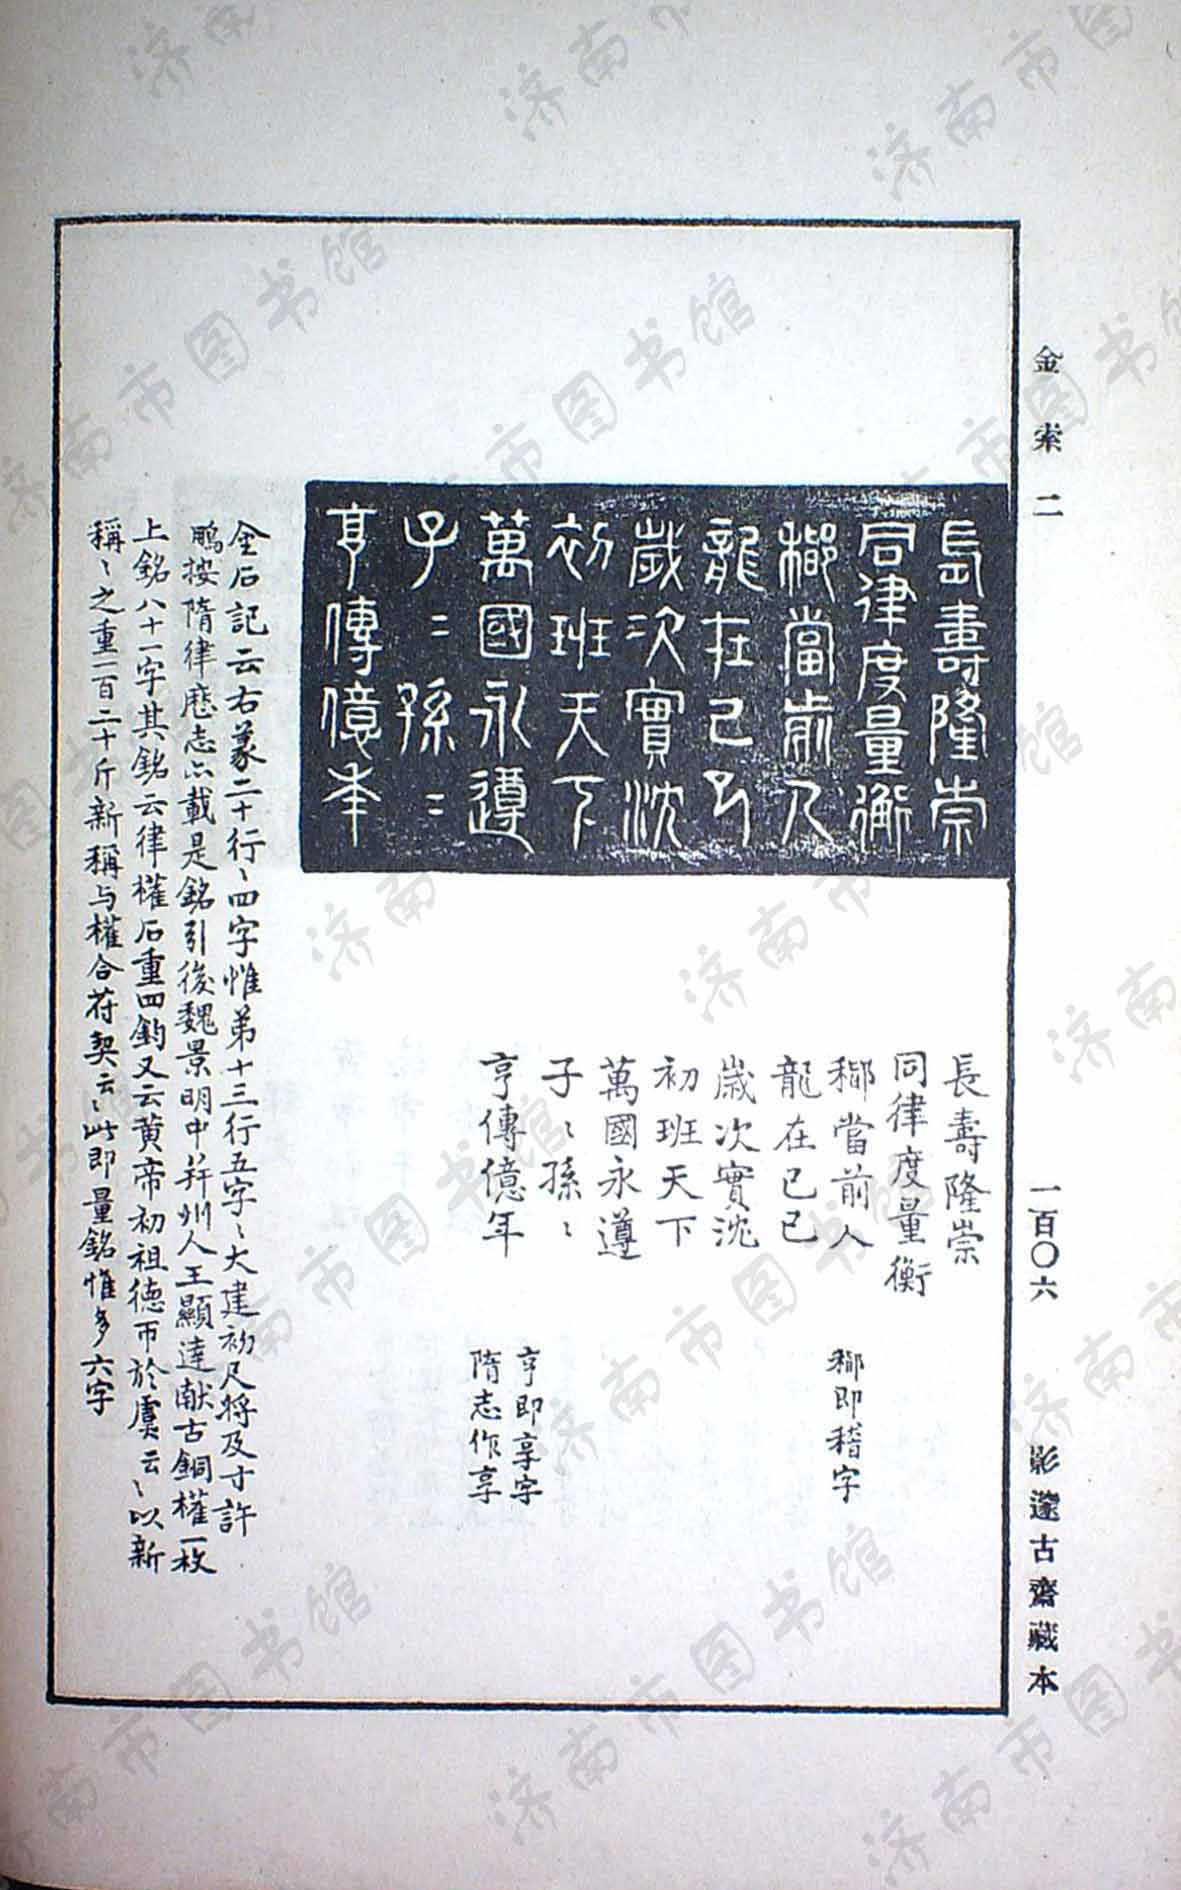 金索二
一百〇六
影邃古齋藏本
長壽隆崇
同律度量衡
稽當前人
龍在己巳
歲次實沈
初班天下
萬國永遵
子二孫二
亨傳億年
長壽隆崇
同律度量衡
䅲當前人
䅲即稽字
龍在已已
歲次實沈
初班天下
萬國永遵
子〻孫〻
亨傳億年
亨即享字
隋志作享
金石記云右篆二十行〻四字惟弟十三行五字〻大建初尺將及寸許
鵬按隋律厯志亦載是銘引後魏景明中并州人王顯達献古銅權一枚
上銘八十一字其銘云律權石重四鈞又云黄帝初祖德帀於虞云〻以新
稱〻之重一百二十斤新稱与權合苻契云〻此即量銘惟多六字
济南市图书馆